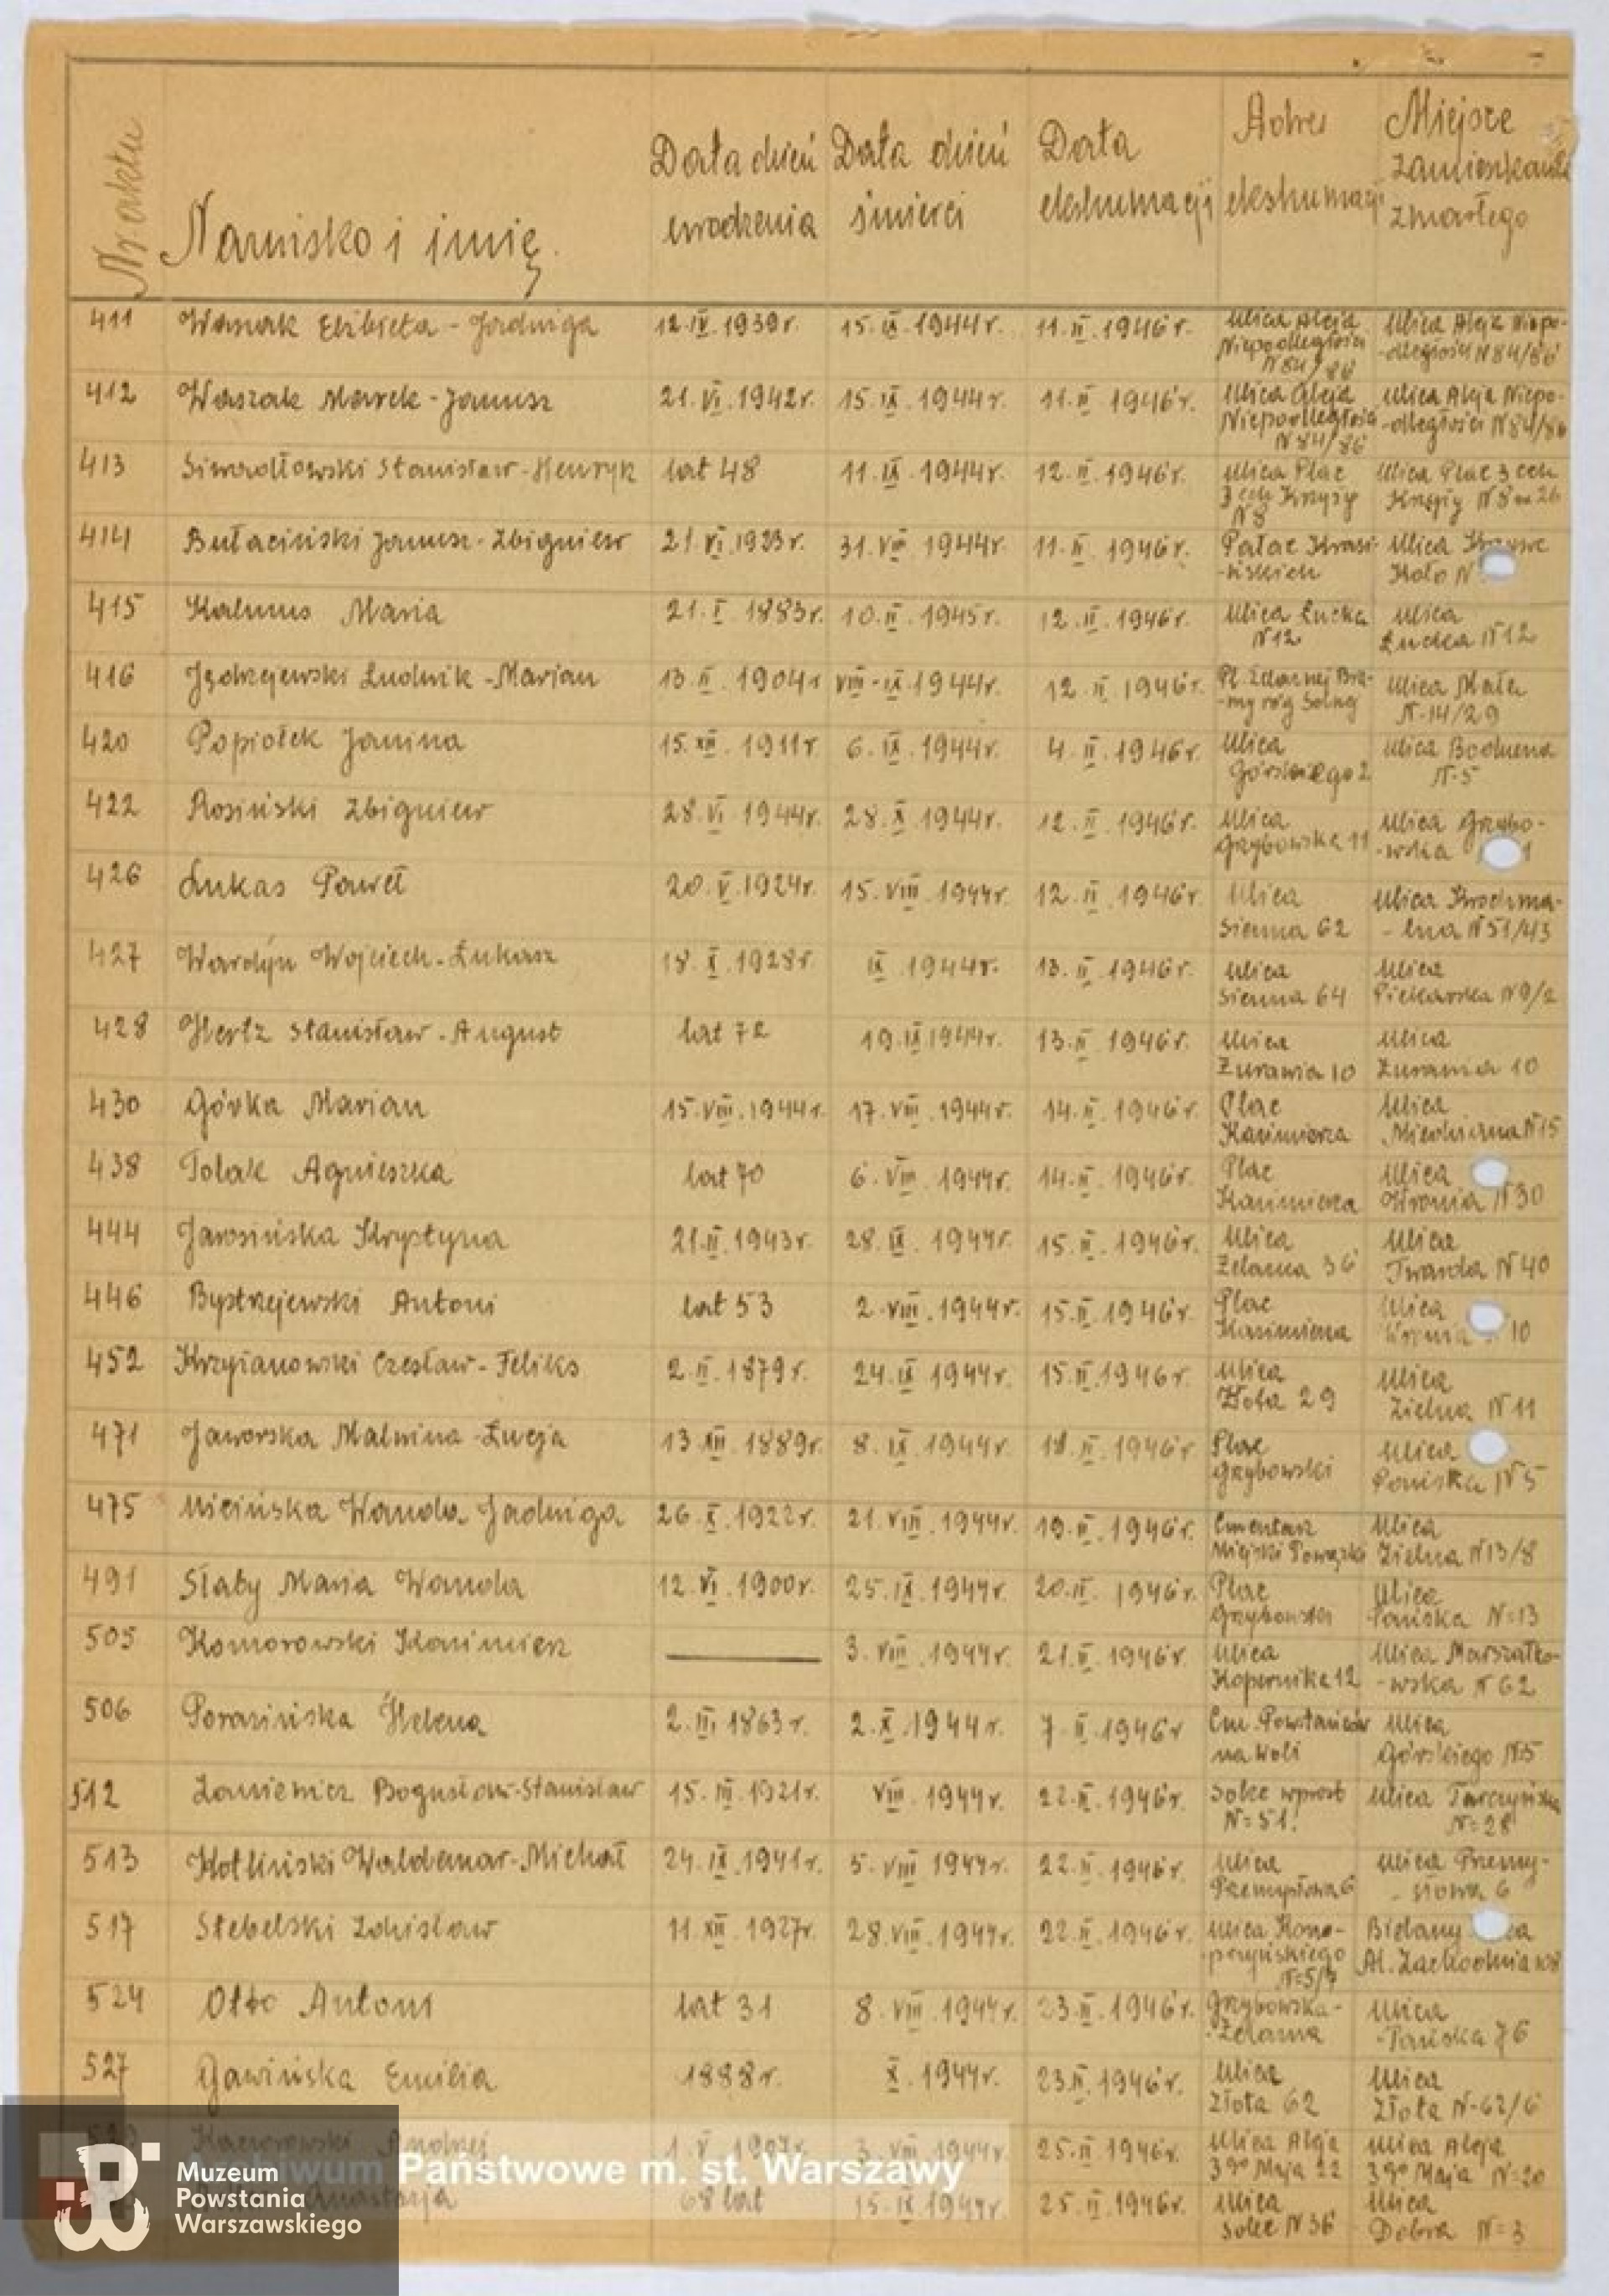 Nr aktu
Nazwisko i imię.
Data dzień urodzenia
Data dzień śmierci
Data ekshumacji
Adres ekshumacji
Miejsce zamieszkania zmarłego
411 Waszak Elżbieta - Jadwiga 12.IV.1939r. 15.IX.1944r. 11.II.1946r. Ulica Aleja Niepodległości N84/86 Ulica Aleja Niepo-dległości N84/86
412 Waszak Marek - Janusz 21.VI.1942r. 15.IX.1944r. 11.II.1946r. Ulica Aleja Niepodległości N84/86 Ulica Aleja Niepo-dległości N84/86
413 Siwadłowski Stanisław-Henryk lat 48 11.IX.1944r. 12.II.1946r. Ulica Plac 3ech Krzyży N8 Ulica Plac 3ech Krzyży N8 m 26
414 Butaciński Janusz-Zbigniew 21.VI.1923r. 31.VIII.1944r. 11.II.1946r. Pałac Krasi-ńskich Ulica Krzywe Koło N
415 Kalmus Maria 21.I.1883r. 10.II.1945r. 12.II.1946r. Ulica Łucka N12 Ulica Łucka N12
416 Jędrzejewski Ludwik-Marian 13.II.1904r VIII-IX.1944r. 12.II.1946r. Pl. Żelaznej Bra-my róg Solnej Ulica Mała N-14/29
420 Popiołek Janina 15.XII.1911r. 6.IX.1944r. 4.II.1946r. Ulica Górskiego 2 Ulica Boduena N-5
422 Rosiński Zbigniew 28.VI.1944r. 28.X.1944r. 12.II.1946r. Ulica Grzybowska 11 Ulica Grzybo-wska 1
426 Lukas Paweł 20.V.1924r. 15.VIII.1944r. 12.II.1946r. Ulica Sienna 62 Ulica Krochma-lna N51/43
427 Wardyn Wojciech-Łukasz 18.X.1928r. IX.1944r. 13.II.1946r. Ulica Sienna 64 Ulica Piekarska N9/2
428 Hertz Stanisław-August lat 72 19.IX.1944r. 13.II.1946r. Ulica Żurawia 10 Ulica Żurawia 10
430 Górka Marian 15.VIII.1944r. 17.VIII.1944r. 14.II.1946r. Plac Kazimierza Ulica Miedziana N15
438 Polak Agnieszka lat 70 6.VIII.1944r. 14.II.1946r. Plac Kazimierza Ulica Wronia N30
444 Jarosińska Krystyna 21.II.1943r. 28.IX.1944r. 15.II.1946r. Ulica Żelazna 36 Ulica Twarda N40
446 Bystrzejewski Antoni lat 53 2.VIII.1944r. 15.II.1946r. Plac Kazimierza Ulica Wronia 10
452 Krzyżanowski Czesław-Feliks 2.II.1879r. 24.IX.1944r. 15.II.1946r. Ulica Złota 29 Ulica Zielna N11
471 Jaworska Malwina-Łucja 13.XII.1889r. 8.IX.1944r. 18.II.1946r Plac Grzybowski Ulica Pańska N5
475 Micińska Wanda Jadwiga 26.X.1922r. 21.VIII.1944r. 19.II.1946r. Cmentarz Miejski Powązki Ulica Zielna N13/8
491 Słaby Maria Wanda 12.VI.1900r. 25.IX.1944r. 20.II.1946r. Plac Grzybowski Ulica Pańska N=13
505 Komorowski Kazimierz — 3.VIII.1944r. 21.II.1946r. Ulica Kopernika 12 Ulica Marszałko-wska N62
506 Porazińska Helena 2.III.1863r. 2.X.1944r. 7.II.1946r Cm. Powstańców na Woli Ulica Górskiego N5
512 Zaniewicz Bogusław-Stanisław 15.III.1921r. VIII.1944r. 22.II.1946r. Solec wprost N=51. Ulica Tarczyńska N=28
513 Kotliński Waldemar-Michał 24.IX.1941r. 5.VIII.1944r. 22.II.1946r. Ulica Przemysłowa 6 Ulica Przemy-słowa 6
517 Stebelski Zdzisław 11.XII.1927r. 28.VIII.1944r. 22.II.1946r. Ulica Kono-pczyńskiego N=5/7 Bielany Al. Zachodnia
524 Otto Antoni lat 31 8.VIII.1944r. 23.II.1946r. Grzybowska-Żelazna Ulica Pańska 76
527 Gawińska Emilia 1888r. X.1944r. 23.II.1946r. Ulica Złota 62 Ulica Złota N-62/6
Kaczorowski Andrzej 1.V.1907r. 3.VIII.1944r. 25.II.1946r. Ulica Aleja 3go Maja 22 Ulica Aleja 3go Maja N=20
Anastazja 68 lat 15.IX.1944r. 25.II.1946r. Ulica Solec N36 Ulica Dobra N=3
Archiwum Państwowe m. st. Warszawy
Muzeum
Powstania
Warszawskiego